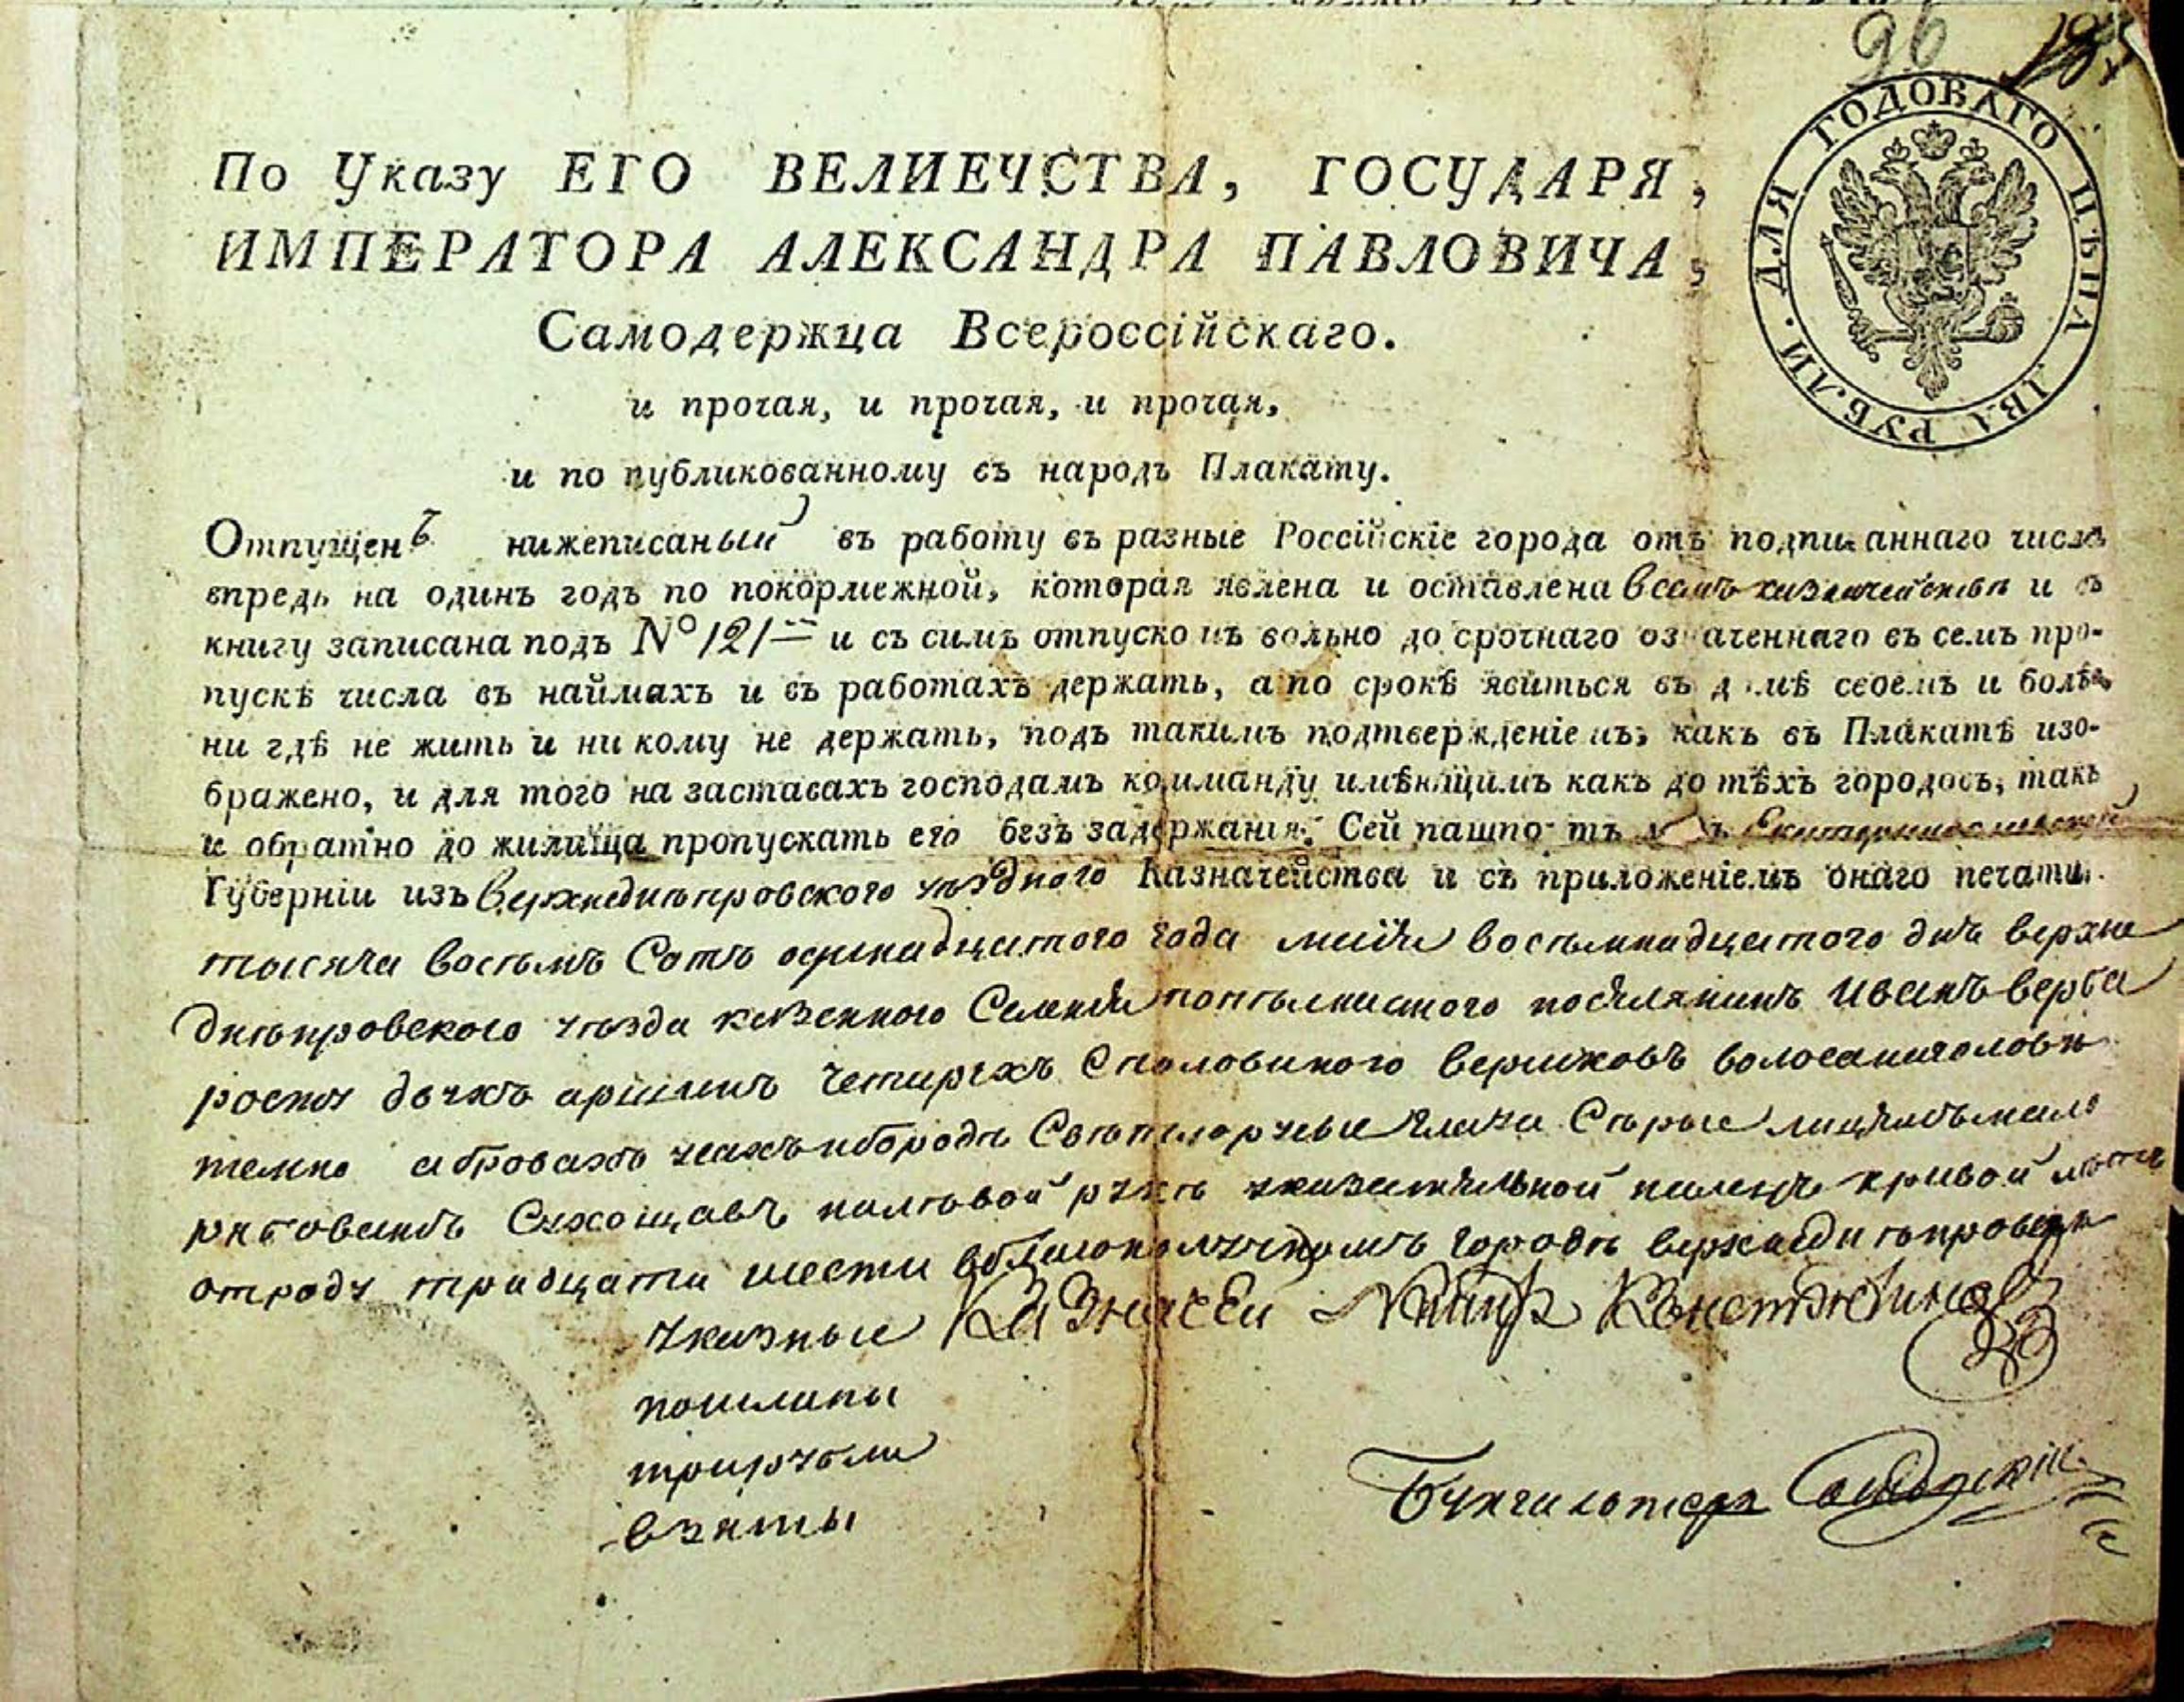 96
ДЛЯ ГОДОВАГО ЦѢНА ДВА РУБЛИ.
По Указу ЕГО ВЕЛИЕЧСТВА, ГОСУДАРЯ,
ИМПЕРАТОРА АЛЕКСАНДРА ПАВЛОВИЧА,
Самодержца Всероссійскаго.
и прочая, и прочая, и прочая,
и по публикованному въ народъ Плакату.
Отпущенъ нижеписаный въ работу въ разные Россійскіе города отъ подписаннаго числа
впредь на одинъ годъ по покормежной, которая явлена и оставлена в семъ казначействѣ и въ
книгу записана подъ № 121 и съ симъ отпускомъ вольно до срочнаго означеннаго въ семъ про-
пускѣ числа въ наймахъ и въ работахъ держать, а по срокѣ явиться въ домѣ своемъ и болѣе
ни гдѣ не жить и ни кому не держать, подъ такимъ подтвержденіемъ, какъ въ Плакатѣ изо-
бражено, и для того на заставахъ господамъ комманду имѣющимъ какъ до тѣхъ городовъ, такъ
и обратно до жилища пропускать его безъ задержанія. Сей пашпортъ Екатеринославской
Губерніи изъ Верхнеднѣпровского уѣздного Казначейства и съ приложеніемъ онаго печати.
тысяча восѣмъ Сотъ осмнадцатого года маія восѣмнадцатого дня верхне
днѣпровского уѣзда казенного Селенія поселянинъ Иванъ верба
росту двухъ аршинъ четирехъ Споловиною вершковъ волосанаголовѣ
темно а бровахъ усахъ ибородѣ Свѣтлорусые глаза Сѣрые лицемъ мало
рябоватъ Сухощавъ налѣвой рукѣ указательной палецъ кривой лѣта
отроду тридцати шести вышеписанномъ городѣ верхнеднѣпровскѣ
указные Казначей Константинов
пошлины
трирубли
взяты
Бухгалтеръ